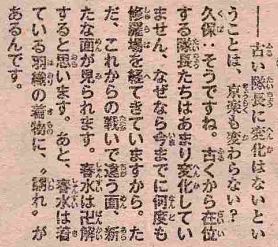 ――古い隊長に変化はないとい
うことは、京楽も変わらない？
久保：そうですね。古くから在位
する隊長たちはあまり変化してい
ません、なぜなら今までに何度も
修羅場を経てきていますから。た
だ、これからの戦いで違う面、新
たな面が見られます。春水は卍解
すると思います。あと、春水は着
ている羽織の着物に、〝謂れ〟が
あるんです。